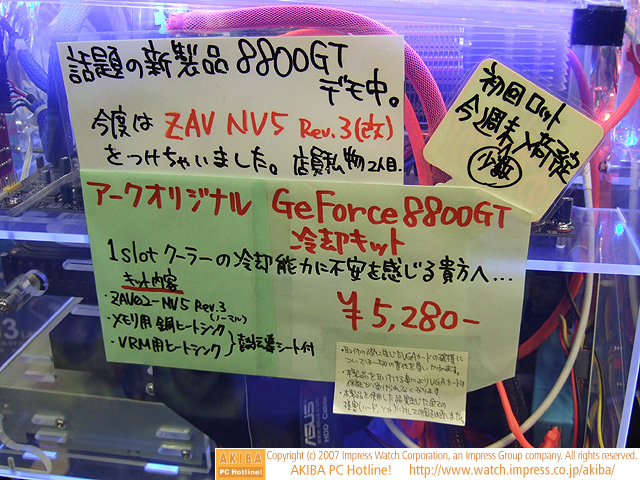 話題の新製品8800GT
デモ中。
今度は ZAV NV5 Rev.3(改)
をつけちゃいました。店員私物2人目.
初回ロット
今週末入荷予定
少数
アークオリジナル GeForce8800GT
冷却キット
1slotクーラーの冷却能力に不安を感じる貴方へ…
キット内容
・ZAV02-NV5 Rev.3
(ノーマル)
・メモリ用 銅ヒートシンク
・VRM用ヒートシンク
シート付
¥5,280-
ASUS
AKIBA
PC Hotline!
Copyright (c) 2007 Impress Watch Corporation, an Impress Group company. All rights reserved.
AKIBA PC Hotline! http://www.watch.impress.co.jp/akiba/